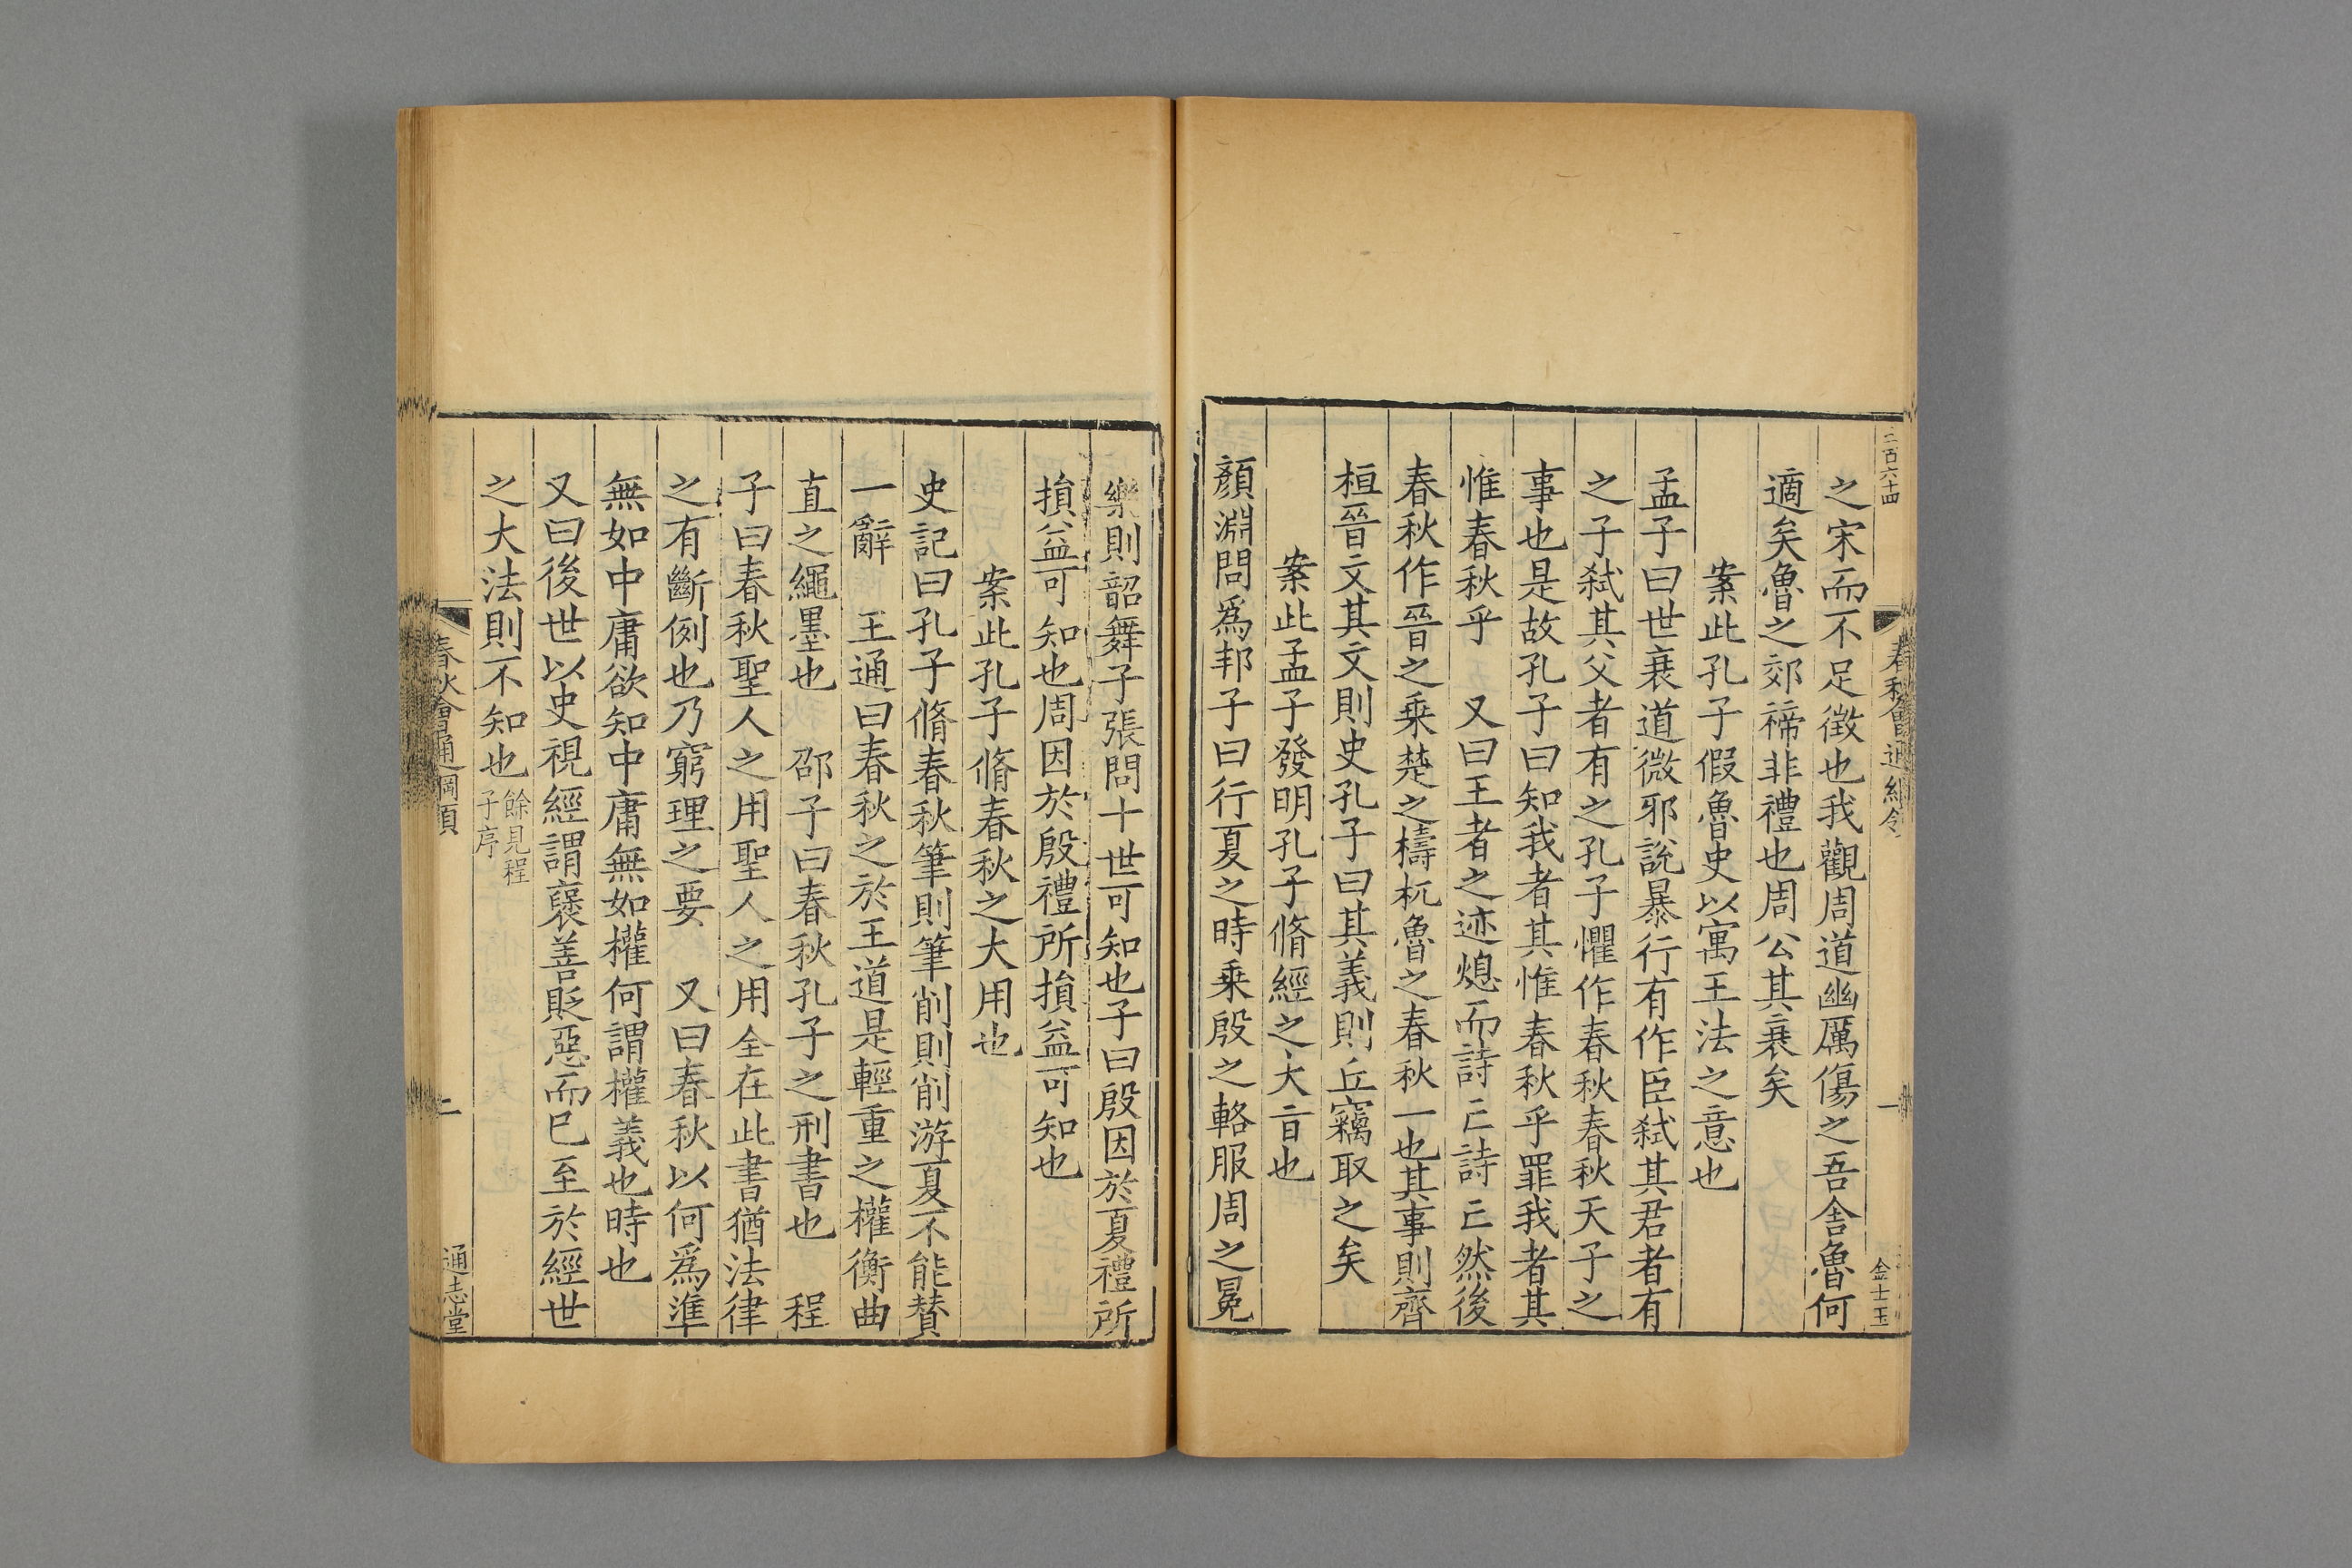 二百六十四
春秋會通綱領
一
金士玉
之宋而不足徵也我觀周道幽厲傷之吾舍魯何
適矣魯之郊禘非禮也周公其衰矣
案此孔子假魯史以寓王法之意也
孟子曰世衰道微邪說暴行有作臣弒其君者有
之子弒其父者有之孔子懼作春秋春秋天子之
事也是故孔子曰知我者其惟春秋乎罪我者其
惟春秋乎 又曰王者之迹熄而詩亡詩亡然後
春秋作晉之乗楚之檮杌魯之春秋一也其事則齊
桓晉文其文則史孔子曰其義則丘竊取之矣
案此孟子發明孔子脩經之大旨也
顏淵問爲邦子曰行夏之時乗殷之輅服周之冕
樂則韶舞子張問十世可知也子曰殷因於夏禮所
損益可知也周因於殷禮所損益可知也
案此孔子脩春秋之大用也
史記曰孔子脩春秋筆則筆削則削游夏不能賛
一辭 王通曰春秋之於王道是輕重之權衡曲
直之繩墨也 邵子曰春秋孔子之刑書也 程
子曰春秋聖人之用聖人之用全在此書猶法律
之有斷例也乃窮理之要 又曰春秋以何爲準
無如中庸欲知中庸無如權何謂權義也時也
又曰後世以史視經謂襃善貶惡而已至於經世
之大法則不知也餘見程
子序
春秋會通綱領
二
通志堂